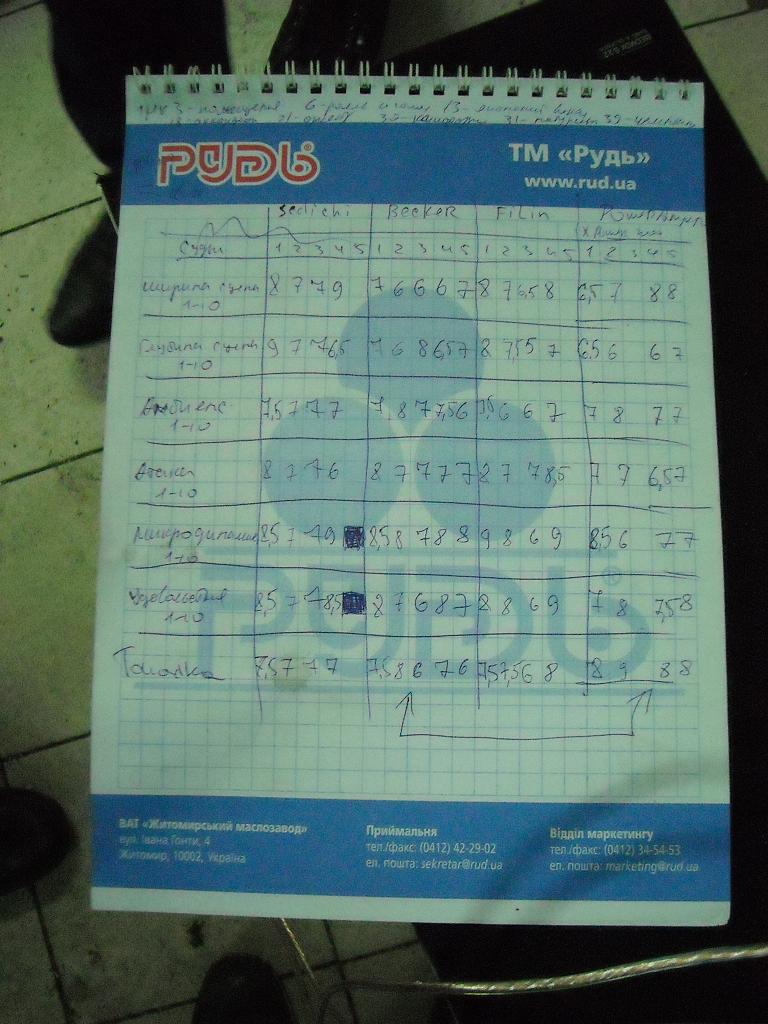 3 - помещения 6 - рояль 13 -
РУДЬ
ТМ «Рудь»
www.rud.ua
Sedichi Becker Filin
Судьи 1 2 3 4 5 1 2 3 4 5 1 2 3 4 5 1 2 3 4 5
ширина сцены 8 7 7 9 7 6 6 6 7 8 7 6,5 8 6,5 7 8 8
1-10
Глубина сцены 9 7 7 6,5 7 6 8 6,5 7 8 7,5 5 7 6,5 6 6 7
1-10
Амбиенс 7,5 7 7 7 7 8 7 7,5 6 7,5 6 6 7 7 8 7 7
1-10
Атака 8 7 7 6 8 7 7 7 7 8 7 7 8,5 7 7 6,5 7
1-10
Микродинамика 8,5 7 7 9 8,5 8 7 8 8 9 8 6 9 8,5 6 7 7
1-10
Удовольствия 8,5 7 7 8,5 8 7 6 8 7 8 8 6 9 7 8 7,5 8
1-10
Тоналка 7,5 7 7 7 7,5 8 6 7 6 7,5 7,5 6 8 8 9 8 8
РУДЬ®
ВАТ «Житомирський маслозавод»
вул. Івана Гонти, 4
Житомир, 10002, Україна
Приймальня
тел./факс: (0412) 42-29-02
ел. пошта: sekretar@rud.ua
Відділ маркетингу
тел./факс: (0412) 34-54-53
ел. пошта: marketing@rud.ua